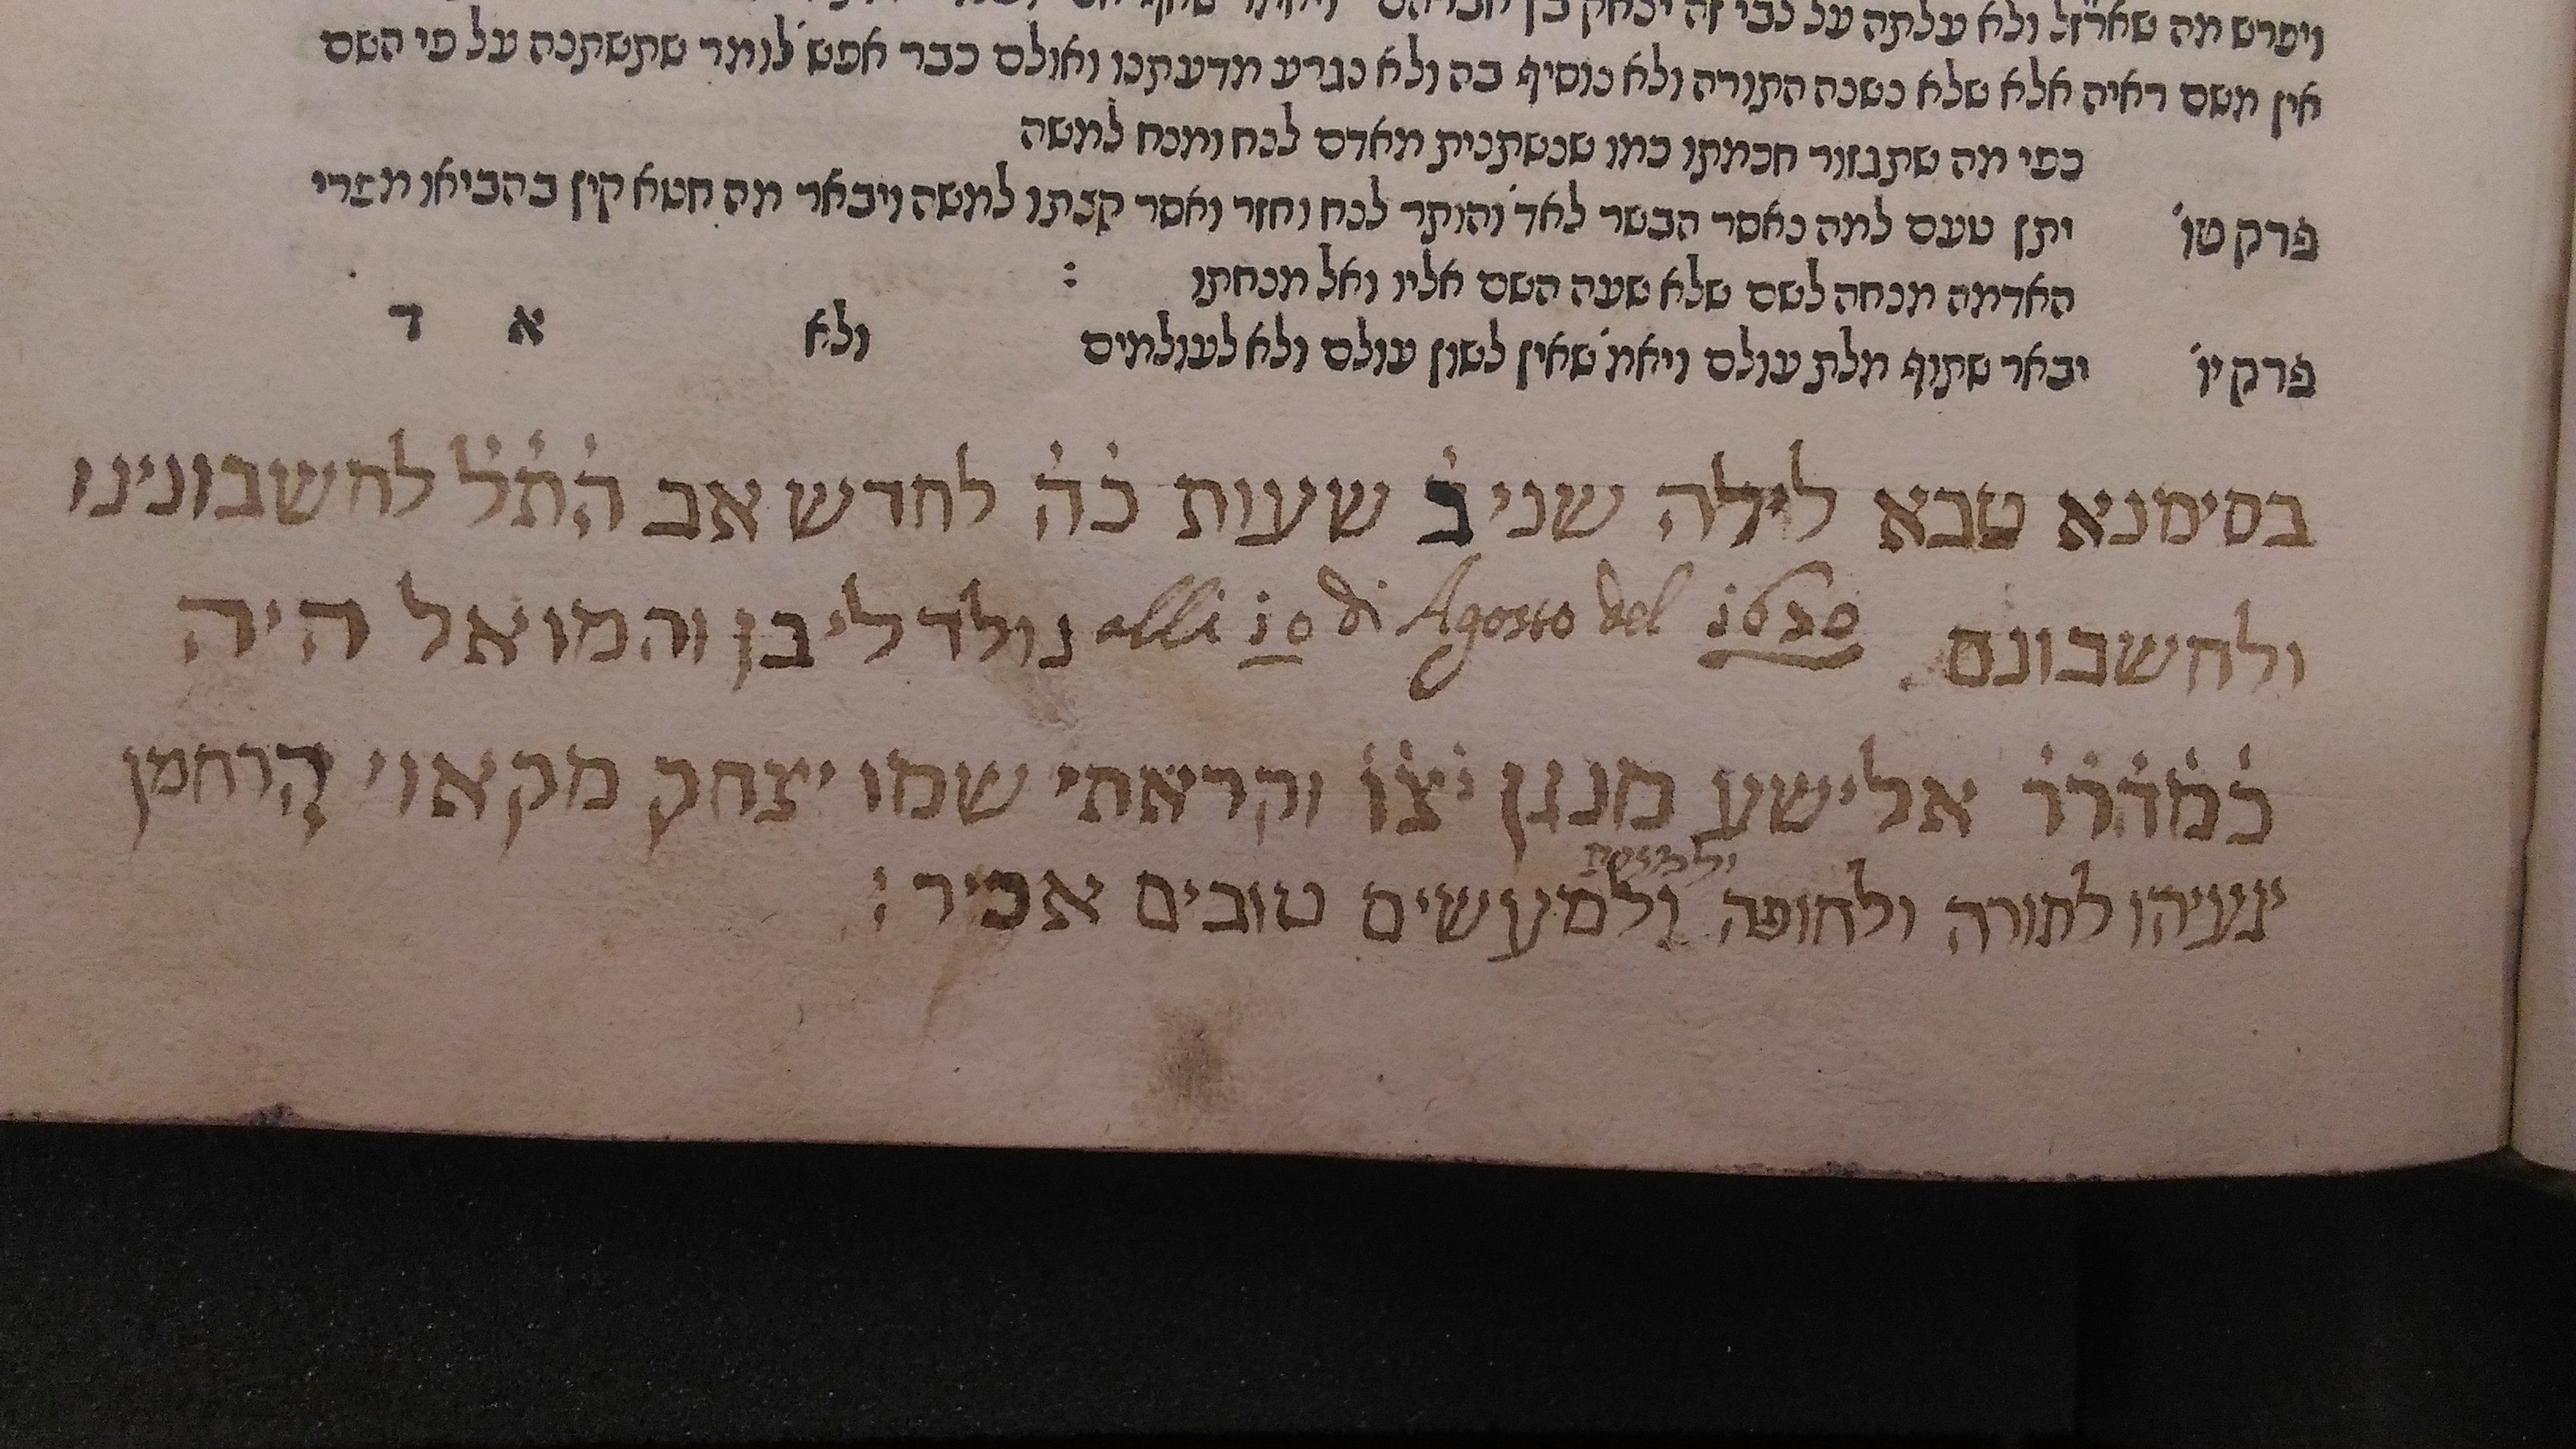 ויפרש מה שארז״ל ולא עלתה על גבי זה יצחק בן אברהם
אין משם ראיה אלא שלא נשנה התורה ולא נוסיף בה ולא נגרע מדעתנו ואולם כבר אפש׳ לומר שתשתנה על פי השם
כפי מה שתגזור חכמתו כמו שנשתנית מאדם לנח ומנח למשה
פרק טו׳ יתן טעם למה נאסר הבשר לאד׳ והותר לנח וחזר ואסר קצתו למשה ויבאר מה חטא קין בהביאו מפרי
האדמה מנחה לשם שלא שעה השם אליו ואל מנחתו :
פרק יו׳ יבאר שתוף מלת עולם ויאמ׳ שאין לשון עולם ולא לעולמים ולא א ד
בסימנא טבא לילה שני ב׳ שעות כ׳ה׳ לחדש אב ה׳ת׳ל׳ לחשבונינו
ולחשבונם alli 10 di Agosto del 1630 נולד לי בן והמואל היה
כ׳מ׳ה׳ר׳ר׳ אלישע מנגן י׳צ׳ו׳ וקראתי שמו יצחק מקאוי הרחמן
יגעיהו לתורה ולחופה ולמעשים טובים אכיר :